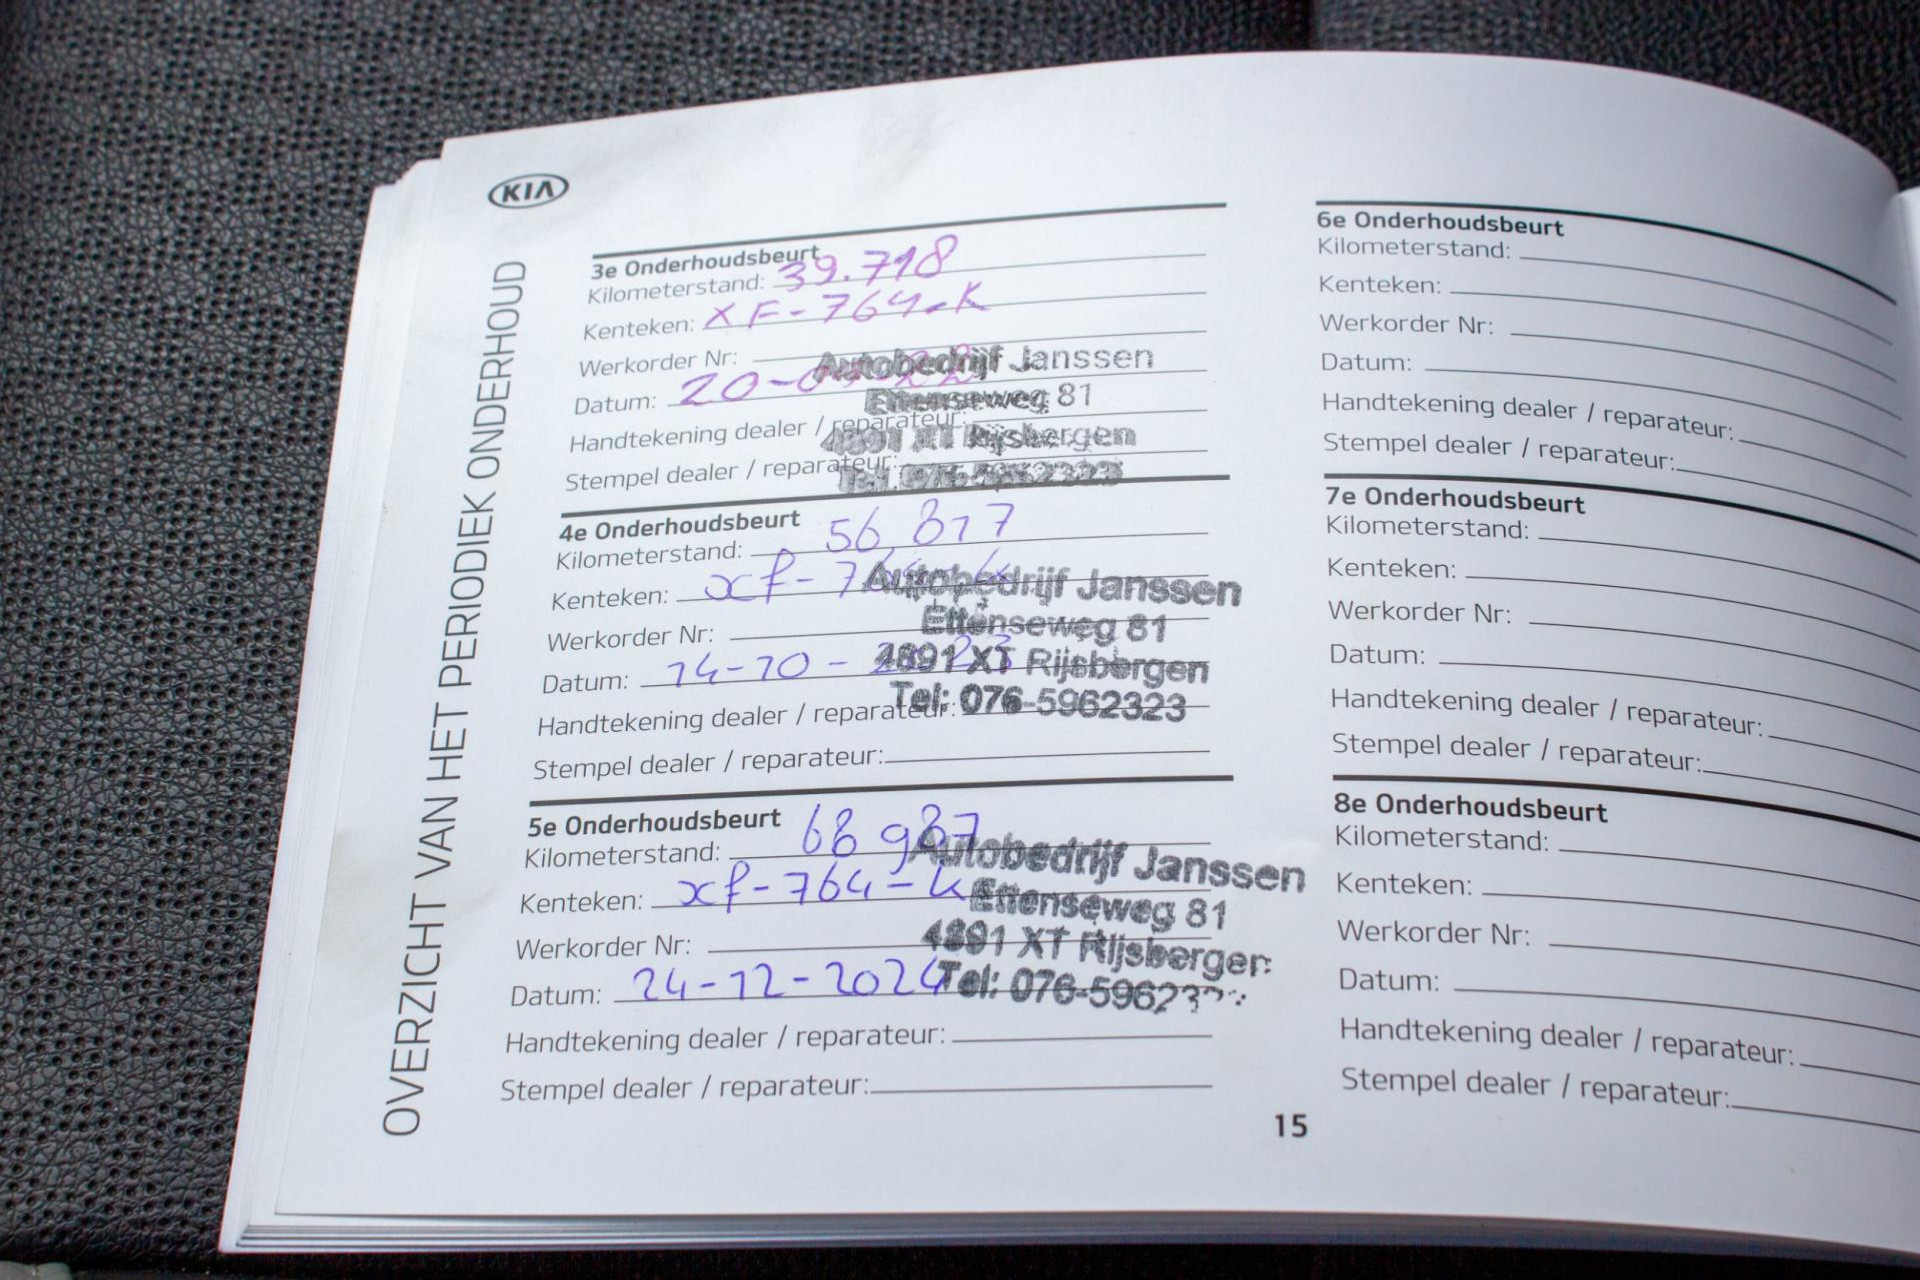 KIA
OVERZICHT VAN HET PERIODIEK ONDERHOUD
3e Onderhoudsbeurt
Kilometerstand: 39.718
Kenteken: XF-764-K
Werkorder Nr:
Datum: 20-
Handtekening dealer / reparateur:
Stempel dealer / reparateur:
Autobedrijf Janssen
Ettenseweg 81
4891 XT Rijsbergen
Tel: 076-5962323
4e Onderhoudsbeurt
Kilometerstand: 56 817
Kenteken: xf-764-k
Werkorder Nr:
Datum: 14-10-2023
Handtekening dealer / reparateur:
Stempel dealer / reparateur:
Autobedrijf Janssen
Ettenseweg 81
4891 XT Rijsbergen
Tel: 076-5962323
5e Onderhoudsbeurt
Kilometerstand: 68 987
Kenteken: xf-764-k
Werkorder Nr:
Datum: 24-12-2024
Handtekening dealer / reparateur:
Stempel dealer / reparateur:
Autobedrijf Janssen
Ettenseweg 81
4891 XT Rijsbergen
Tel: 076-5962323
6e Onderhoudsbeurt
Kilometerstand:
Kenteken:
Werkorder Nr:
Datum:
Handtekening dealer / reparateur:
Stempel dealer / reparateur:
7e Onderhoudsbeurt
Kilometerstand:
Kenteken:
Werkorder Nr:
Datum:
Handtekening dealer / reparateur:
Stempel dealer / reparateur:
8e Onderhoudsbeurt
Kilometerstand:
Kenteken:
Werkorder Nr:
Datum:
Handtekening dealer / reparateur:
Stempel dealer / reparateur:
15